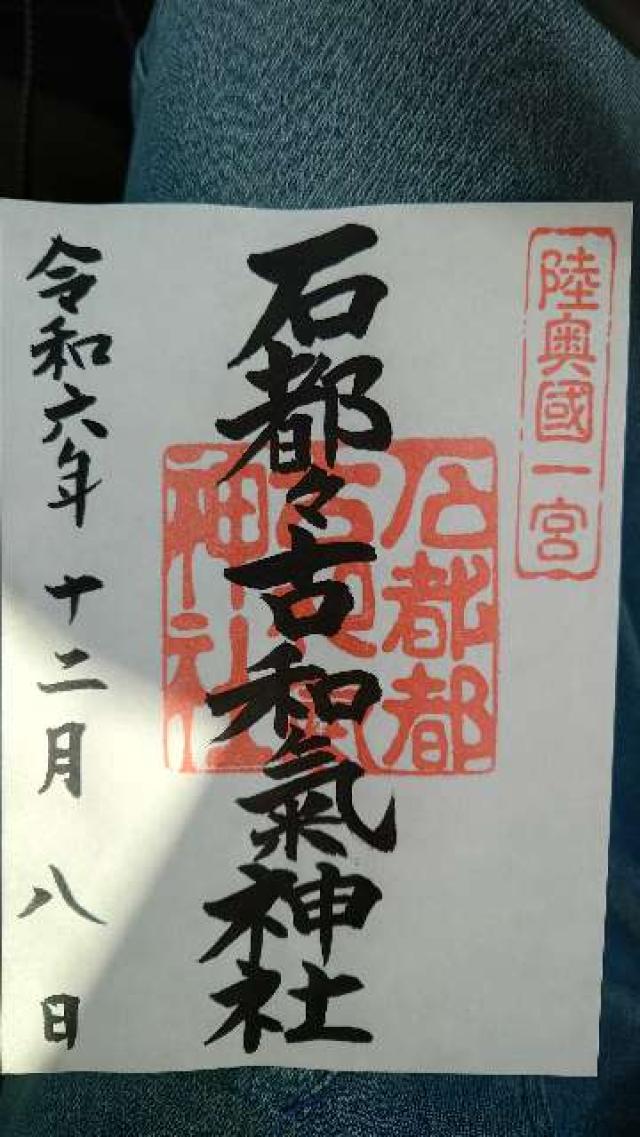 陸奥國一宮
石都々古和氣神社
石都都
古和氣
神社
令和六年 十二月 八日